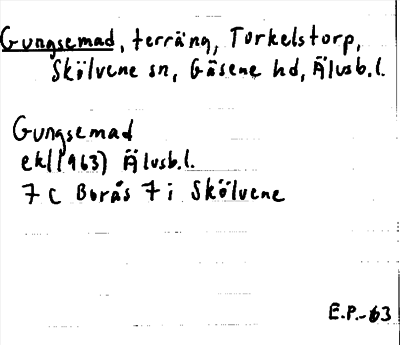 Gungsemad, terräng, Torkelstorp,
Skölvene sn, Gäsene hd, Älvsb.l.
Gungsemad
ekl(1963) Älvsb.l.
7 C Borås 7 i Skölvene
E.P.-63